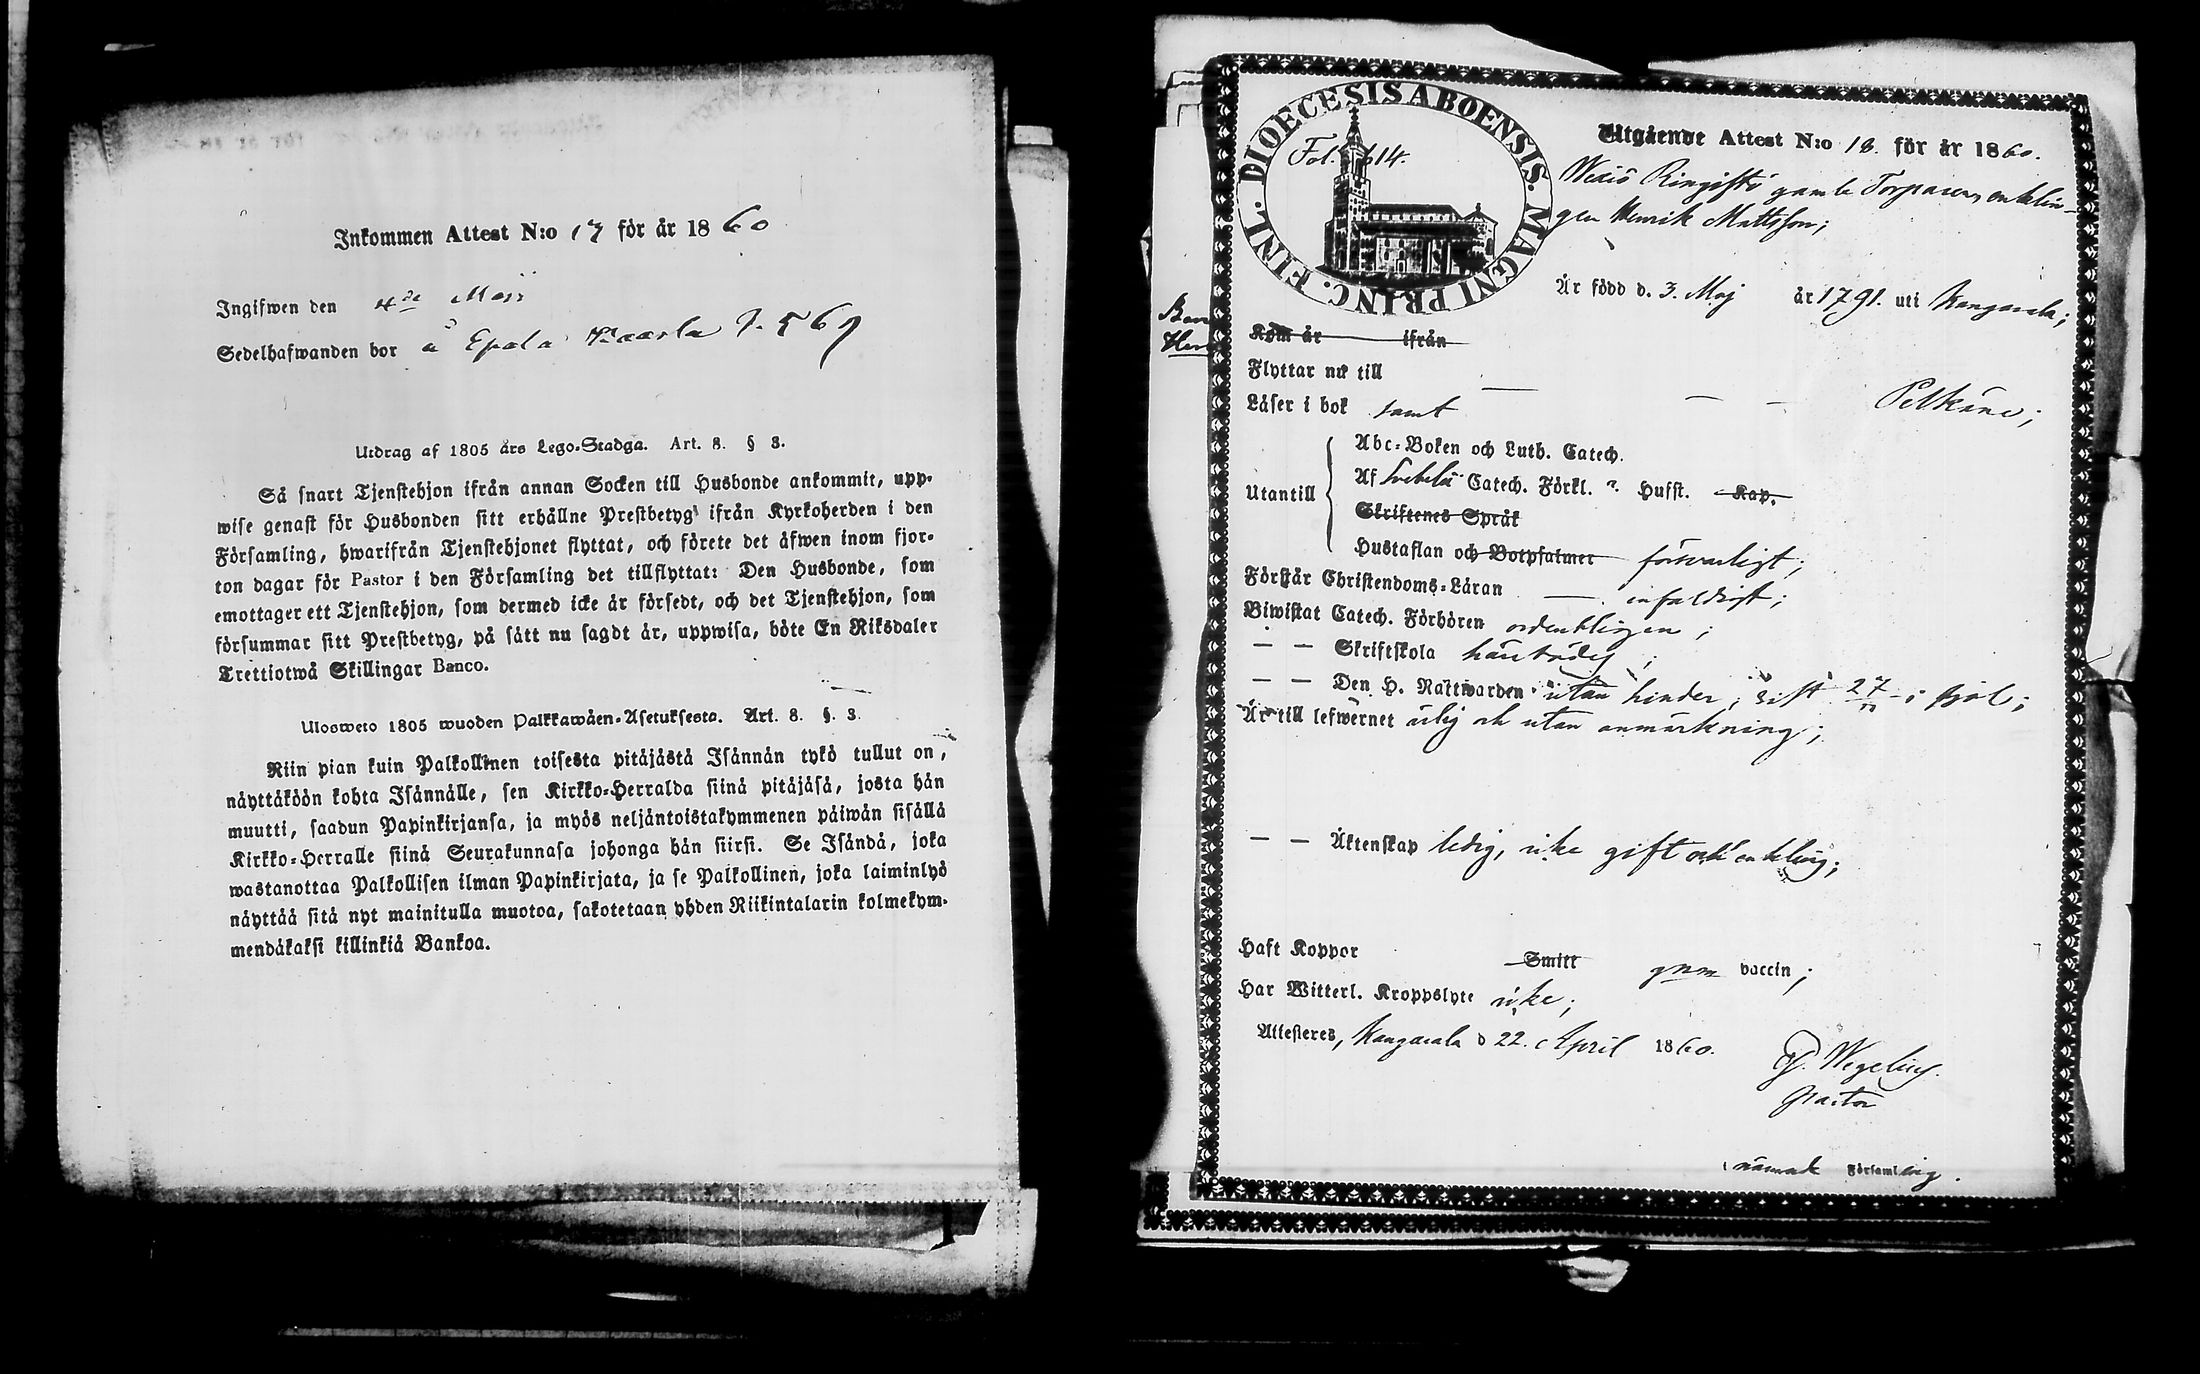 Inkommen Attest N:o 17 för år 1860
Ingifwen den 4de Maji
Sedelhafwanden bor å Epala Kaarla
Utdrag af 1805 års Lego-Stadga. Art. 8. § 3.
Så snart Tjenstehjon ifrån annan Socken till Husbonde ankommit, upp-
wise genast för Husbonden sitt erhållne Prestbetyg ifrån Kyrkoherden i den
Församling, hwarifrån Tjenstehjonet flyttat, och förete det äfwen inom fjor-
ton dagar för Pastor i den Församling det tillflyttat: Den Husbonde, som
emottager ett Tjenstehjon, som dermed icke är försedt, och det Tjenstehjon, som
försummar sitt Prestbetyg, på sätt nu sagdt är, uppwisa, böte En Riksdaler
Trettiotwå Skillingar Banco.
Ulosweto 1805 wuoden Palkkawäen-Asetuksesta. Art. 8. §. 3.
Niin pian kuin Palkollinen toisesta pitäjästä Isännän tykö tullut on,
näyttäköön kohta Isännälle, sen Kirkko-Herralda siinä pitäjäsä, josta hän
muutti, saadun Papinkirjansa, ja myös neljäntoistakymmenen päiwän sisällä
Kirkko-Herralle siinä Seurakunnasa johonga hän siirsi. Se Isändä, joka
wastanottaa Palkollisen ilman Papinkirjata, ja se Palkollinen, joka laiminlyö
näyttää sitä nyt mainitulla muotoa, sakotetaan yhden Riikintalarin kolmekym-
mendäkaksi killinkiä Bankoa.
DIOECESIS ABOENSIS. MAGNI PRINC. FINL.
Fol. 614.
Utgående Attest N:o 18. för år 1860.
Wexiö Ringistö gamle Torparen, enklin-
gen Henrik Mattsson;
Är född d. 3. Maj år 1791. uti Kangasala;
Kom år ifrån
Flyttar nu till — — — Pelkäne;
Läser i bok samt
Utantill
Abc-Boken och Luth. Catech.
Af Svebelii Catech. Förkl. Husst. Kap.
Skriftenes Språk
Hustaflan och Botpsalmer försvarligt;
Förstår Christendoms-Läran — enfaldigt;
Biwistat Catech. Förhören ordentligen;
— — Skriftskola härstädes;
— — Den H. Nattwarden utan hinder, sist 27 i fjol;
Är till lefwernet ärlig och utan anmärkning;
— — Äktenskap ledig, icke gift och enkling;
Haft Koppor Smitt gnm vaccin;
Har Witterl. Kroppslyte icke;
Attesteres, Kangasala d 22. April 1860.
Wegelius.
Pastor
i nämnde Församling.